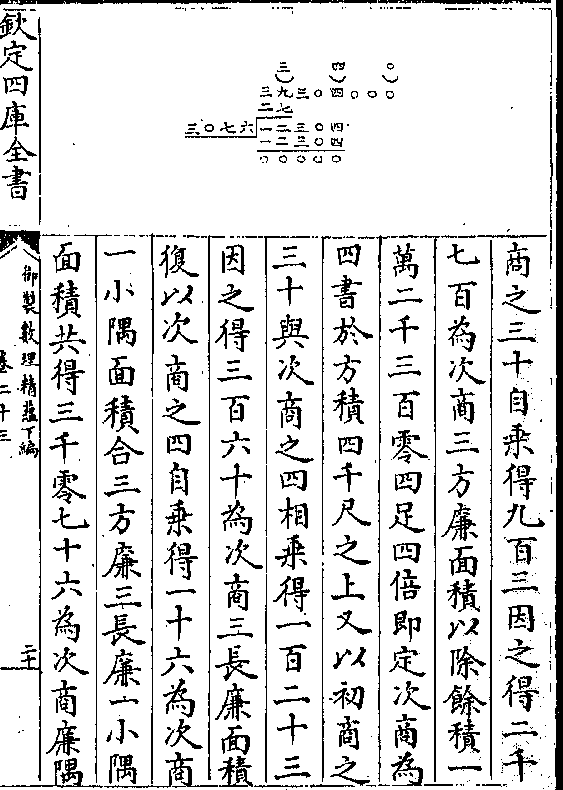 三 四 ○
三九三○四○○○
二七
三○七六 一二三○四
一二三○四
○○○○○
商之三十自乗得九百三因之得二千
七百為次商三方廉面積以除餘積一
萬二千三百零四足四倍即定次商為
四書於方積四千尺之上又以初商之
三十與次商之四相乗得一百二十三
因之得三百六十為次商三長廉面積
復以次商之四自乗得一十六為次商
一小隅面積合三方廉三長廉一小隅
面積共得三千零七十六為次商廉隅
欽定四庫全書
御製數理精蘊下編
卷二十三
二十